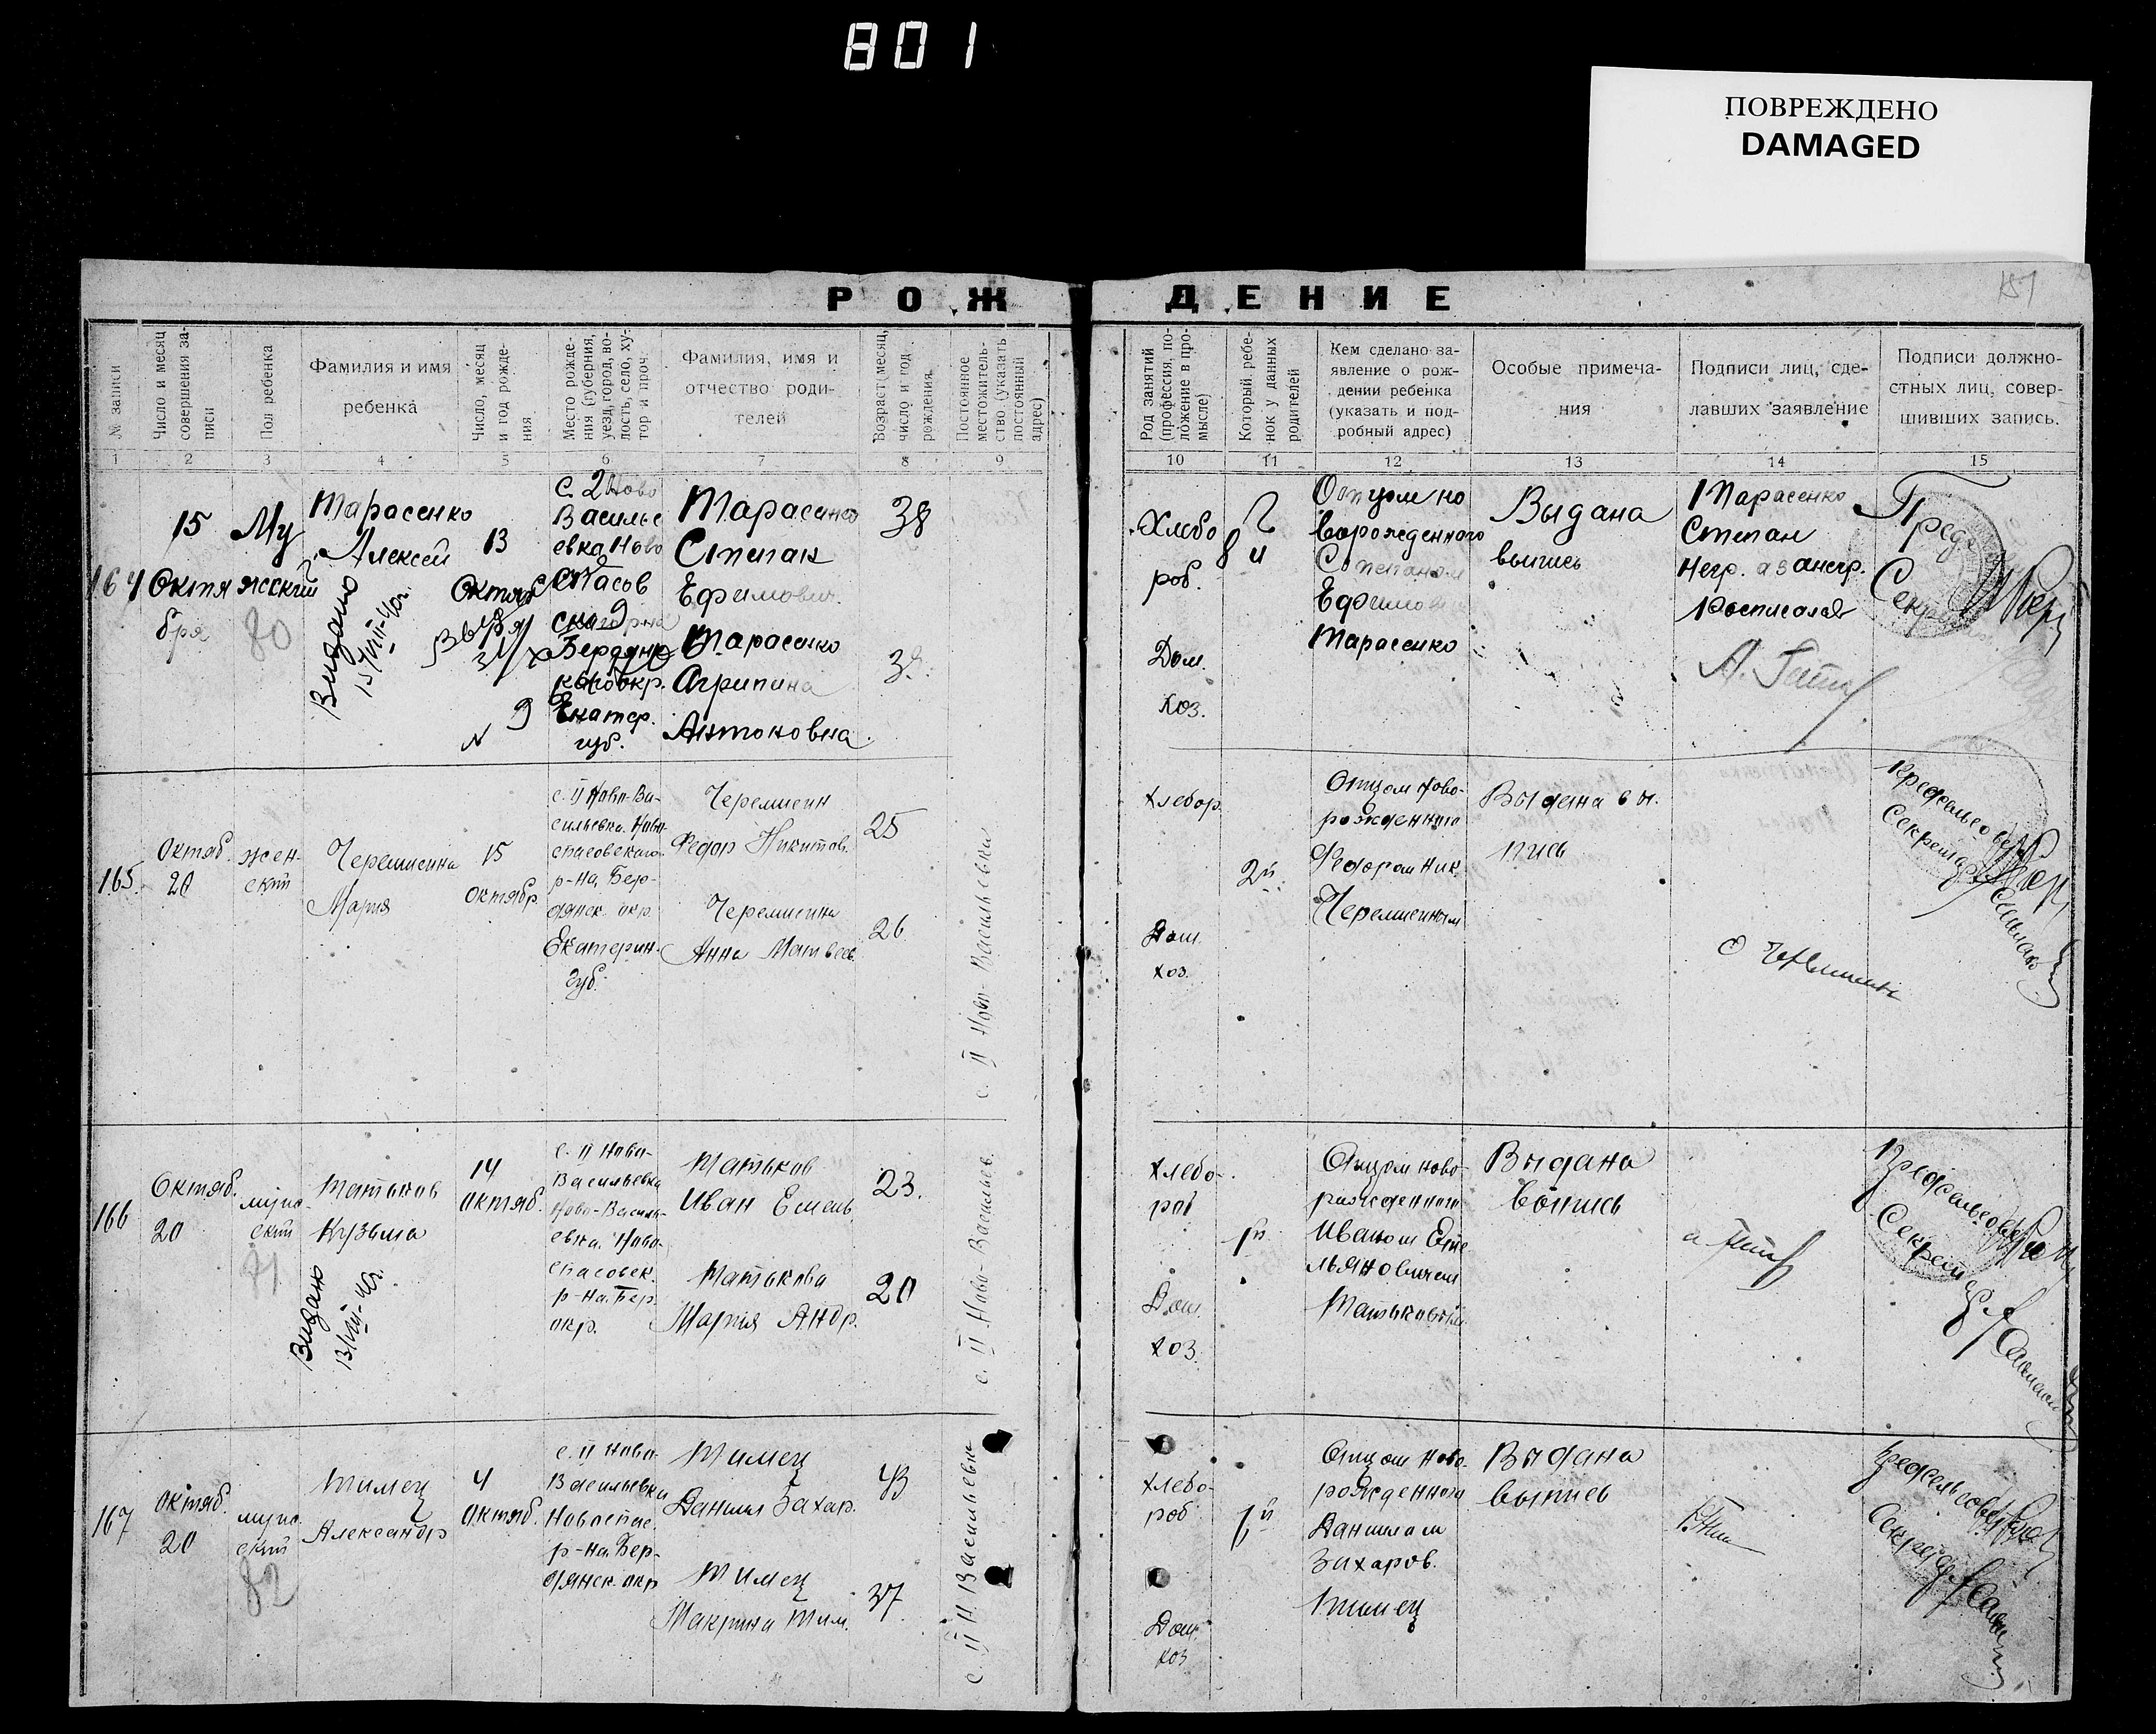 801
ПОВРЕЖДЕНО
DAMAGED
151
РОЖДЕНИЕ
№ записи
Число и месяц совершения записи
Пол ребенка
Фамилия и имя ребенка
Число, месяц и год рождения
Место рождения (губерния, уезд, город, волость, село, хутор и проч.
Фамилия, имя и отчество родителей
Возраст (месяц, число и год рождения
Постоянное местожительство (указать постоянный адрес)
Род занятий (профессия, положение в промысле)
Который ребенок у данных родителей
Кем сделано заявление о рождении ребенка (указать и подробный адрес)
Особые примечания
Подписи лиц, сделавших заявление
Подписи должностных лиц, совершивших запись.
1 2 3 4 5 6 7 8 9 10 11 12 13 14 15
164
15
Октя
бря
Му
жский
80
Тарасенко
Алексей
Видано
15/VIII-40г.
13
Октяб
с. 2 Ново
Василье
евка Ново
спасов
Екатер.
губ.
Тарасенко
Степан
Ефимович
Тарасенко
Агрипина
Антоновна
38
Хлебо
роб.
Дом.
хоз.
Отцом но
ворожденного
Степаном
Ефимови
Тарасенко
Выдана
выпись
Тарасенко
Степан
негр. а за негр.
росписался
Пред
Секр
165.
Октяб.
20
жен-
ский
Черемисина
Мария
15
октябр.
с. II Ново-Ва-
сильевка. Ново-
спасовского
р-на, Бер-
дянск. окр.
Екатерин.
губ.
Черемисин
Федор Никитов.
Черемисина
Анна Матвеев.
25
26
с. II Ново-Васильевка
Хлебор.
Дом.
хоз.
2й
Отцом ново-
рожденного
Федором Ник.
Черемисиным
Выдана вы.
пись
Предсельсовет
Секретарь
166
Октяб.
20
мужс-
ский
81
Матьков
Кузьма
Видано
13/VIII-40г.
14
октяб.
с. II Ново-
Васильевка
Ново-Василь-
евка. Ново-
спасовск.
р-на. Бер.
окр.
Матьков
Иван Емель.
Матькова
Мария Андр.
23.
20
с. II Ново-Васильев.
Хлебо-
роб
Дом.
хоз.
1й
Отцом ново-
рожденного
Иваном Еме-
льяновичем
Матьковым
Выдана
выпись
Предсельсовет
Секретар
167
октяб.
20
мужс-
ский
82
Тимец
Александр
4
октяб.
с. II Ново-
Васильевка
Новоспас.
р-на. Бер-
дянск. окр
Тимец
Данил Захар.
Тимец
Макрина Тим.
43
37
с. II Н. Васильевка
Хлебо-
роб
Дом.
хоз
1й
Отцом ново-
рожденного
Данилом
Захаров.
Тимец
Выдана
выпись
Предсельсовет
Секретар